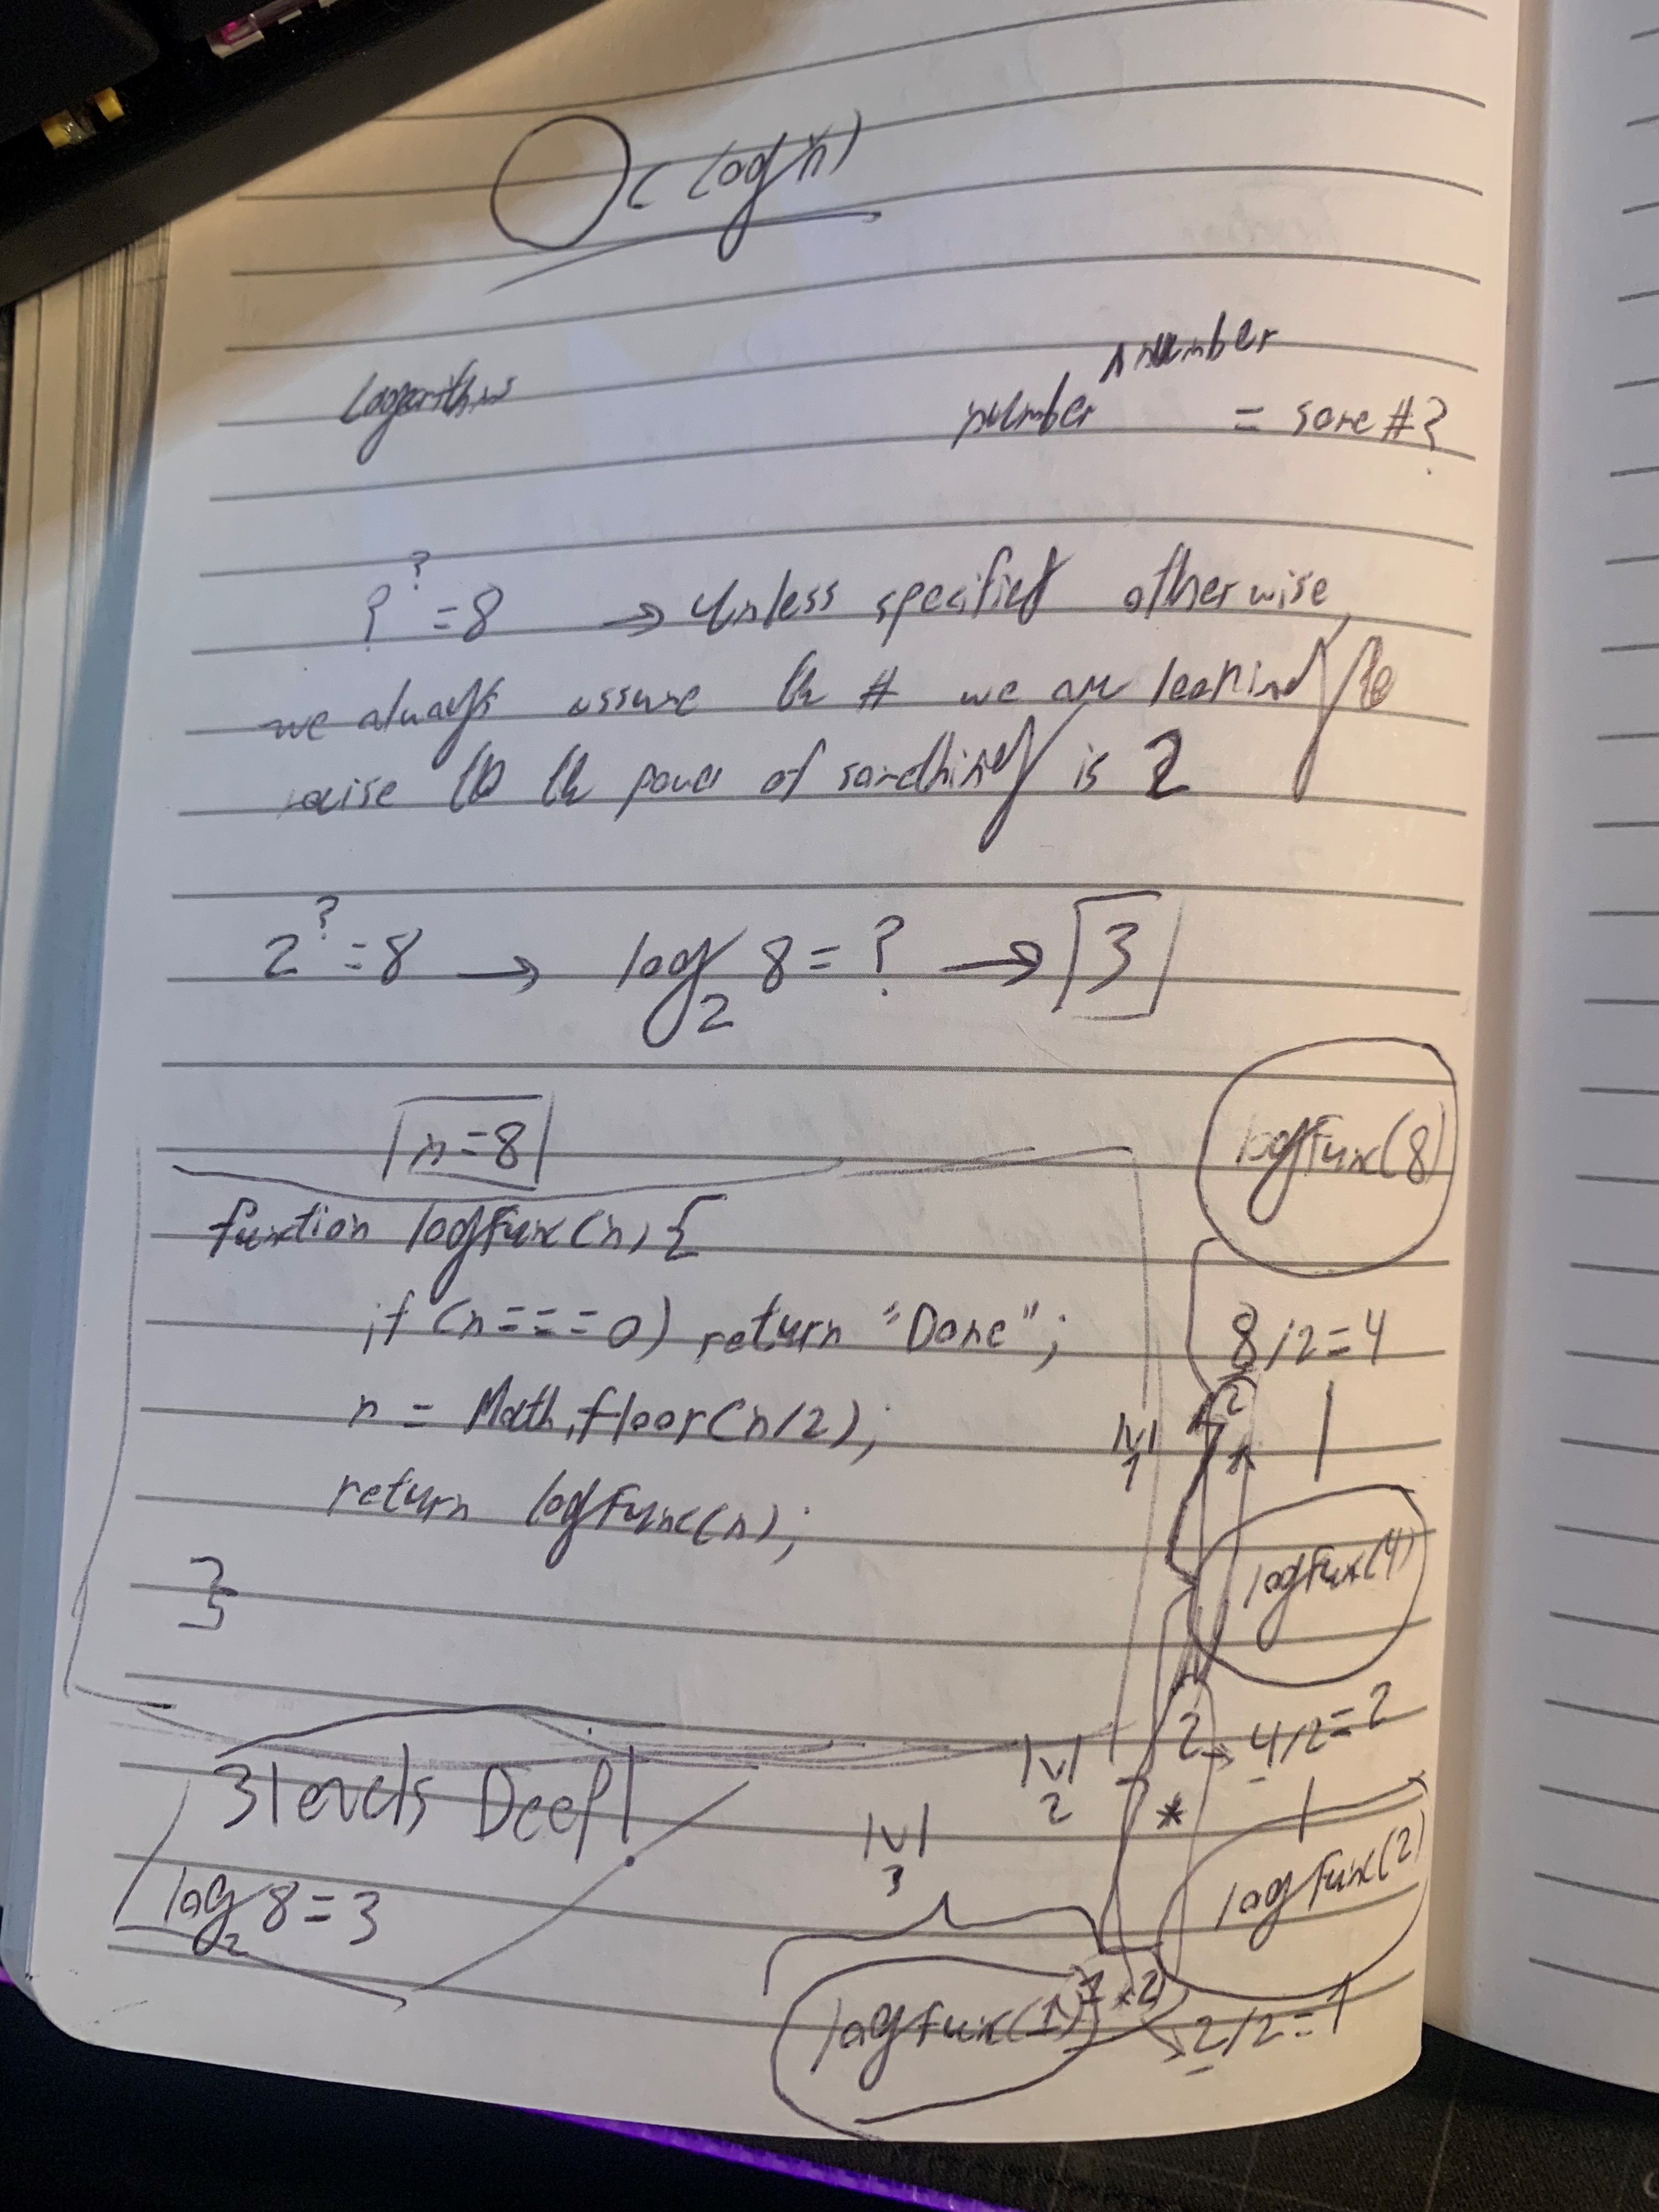 O(log n)
Logarithms
number^number = some #?
?^? = 8 → Unless specified otherwise,
we always assume the # we are looking to
raise to the power of something is 2
2^? = 8 → log₂ 8 = ? → 3
n=8
function logFunc(n) {
if (n===0) return "Done";
n = Math.floor(n/2);
return logFunc(n);
}
logFunc(8)
8/2=4
2
lvl 1
logFunc(4)
2 → 4/2=2
lvl 2
*
logFunc(2)
lvl 3
2/2=1
logFunc(1)
* 2
3 levels Deep!
log₂ 8=3